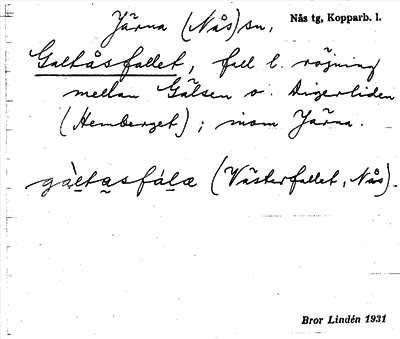 Järna (Nås) sn,
Nås tg, Kopparb. l.
Galtåsfallet, fell l. röjning
mellan Gälsen o. Digerliden
(Hemberget); inom Järna.
gàltasfálα (Västerfallet, Nås).
Bror Lindén 1931